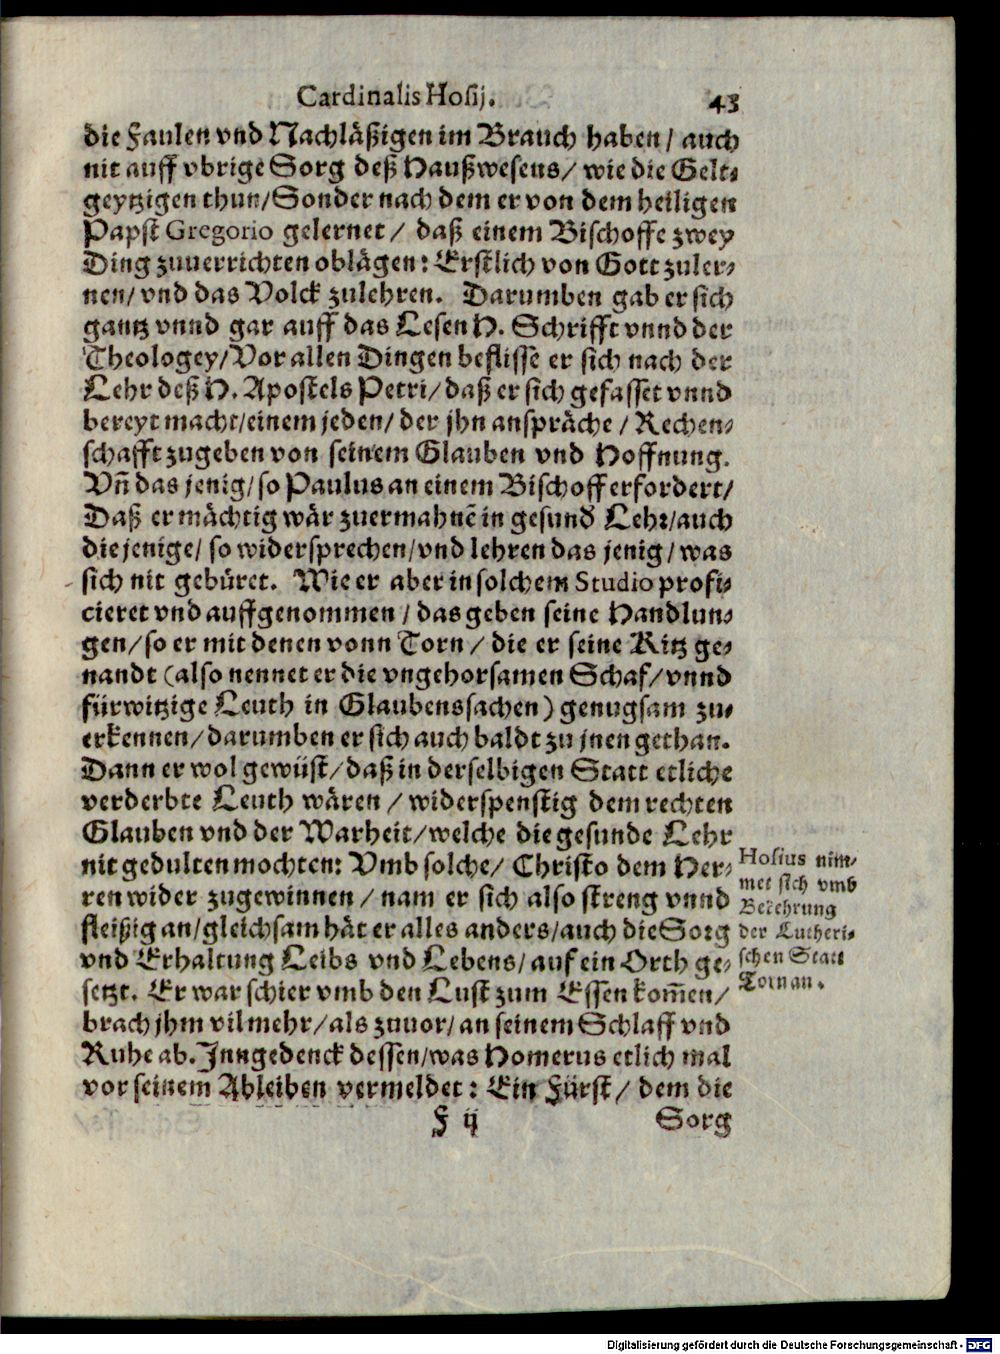 Cardinalis Hosij. 43
die Faulen vnd Nachläßigen im Brauch haben / auch
nit auff vbrige Sorg deß Haußwesens / wie die Gelt⸗
geytzigen thun / Sonder nach dem er von dem heiligen
Papst Gregorio gelernet / daß einem Bischoffe zwey
Ding zuuerrichten oblägen: Erstlich von Gott zuler⸗
nen / vnd das Volck zulehren. Darumben gab er sich
gantz vnnd gar auff das Lesen H. Schrifft vnnd der
Theologey / Vor allen Dingen beflisse er sich nach der
Lehr deß H. Apostels Petri / daß er sich gefasset vnnd
bereyt macht / einem jeden / der jhn anspräche / Rechen⸗
schafft zugeben von seinem Glauben vnd Hoffnung.
Vñ das jenig / so Paulus an einem Bischoff erfordert /
Daß er mächtig wär zuermahnẽ in gesund Lehr / auch
die jenige / so widersprechen / vnd lehren das jenig / was
sich nit gebüret. Wie er aber in solchem Studio profi⸗
cieret vnd auffgenommen / das geben seine Handlun⸗
gen / so er mit denen vonn Torn / die er seine Ritz ge⸗
nandt (also nennet er die vngehorsamen Schaf / vnnd
fürwitzige Leuth in Glaubenssachen) genugsam zu⸗
erkennen / darumben er sich auch baldt zu jnen gethan.
Dann er wol gewüst / daß in derselbigen Statt etliche
verderbte Leuth wären / widerspenstig dem rechten
Glauben vnd der Warheit / welche die gesunde Lehr
nit gedulten mochten: Vmb solche / Christo dem Her⸗
ren wider zugewinnen / nam er sich also streng vnnd
fleißig an / gleichsam hät er alles anders / auch die Sorg
vnd Erhaltung Leibs vnd Lebens / auf ein Orth ge⸗
setzt. Er war schier vmb den Lust zum Essen kom̃en /
brach jhm vil mehr / als zuuor / an seinem Schlaff vnd
Ruhe ab. Jnngedenck dessen / was Homerus etlich mal
vor seinem Ableiben vermeldet: Ein Fürst / dem die
F ij Sorg
Hosius nim⸗
met sich vmb
Bekehrung
der Lutheri⸗
schen Statt
Torn an.
Digitalisierung gefördert durch die Deutsche Forschungsgemeinschaft - DFG